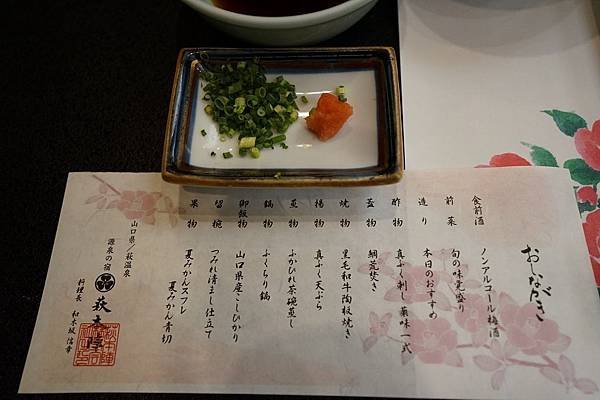 おしながき
食前酒 ノンアルコール梅酒
前菜 旬の味覚盛り
造り 本日のおすすめ
酢物 真ふく刺し 薬味一式
蓋物 鯛荒焚き
焼物 黒毛和牛陶板焼き
揚物 真ふく天ぷら
蒸物 ふかひれ茶碗蒸し
鍋物 ふくちり鍋
御飯物 山口県産こしひかり
留椀 つみれ清まし仕立て
果物 夏みかんスフレ 夏みかん青切
山口県/萩温泉
源泉の宿 萩本陣
料理長 和木坂 信幸